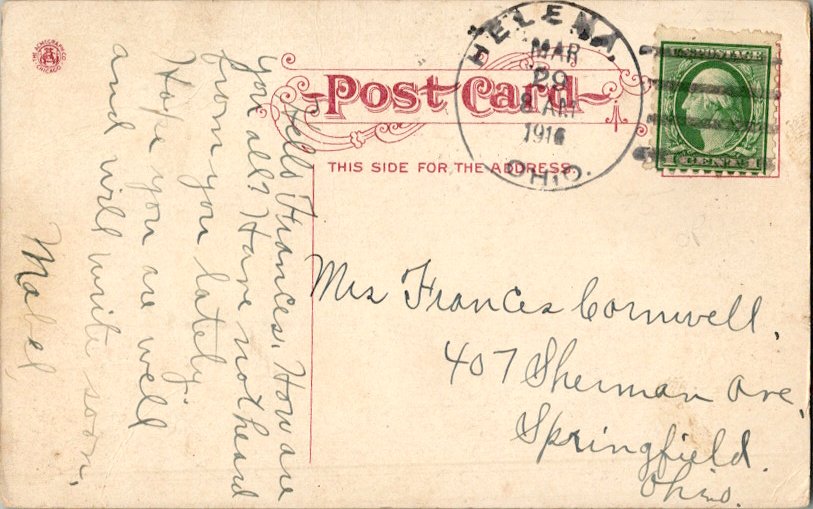 THE ACMEGRAPH CO.
CHICAGO
Post Card
THIS SIDE FOR THE ADDRESS.
HELENA
MAR
29
8 AM
1916
OHIO.
U.S. POSTAGE
1 CENT 1
Hello Frances, How are
you all? Have not heard
from you lately.
Hope you are well
and will write soon,
Mabel
Mrs Frances Cornwell,
407 Sherman Ave,
Springfield
Ohio.